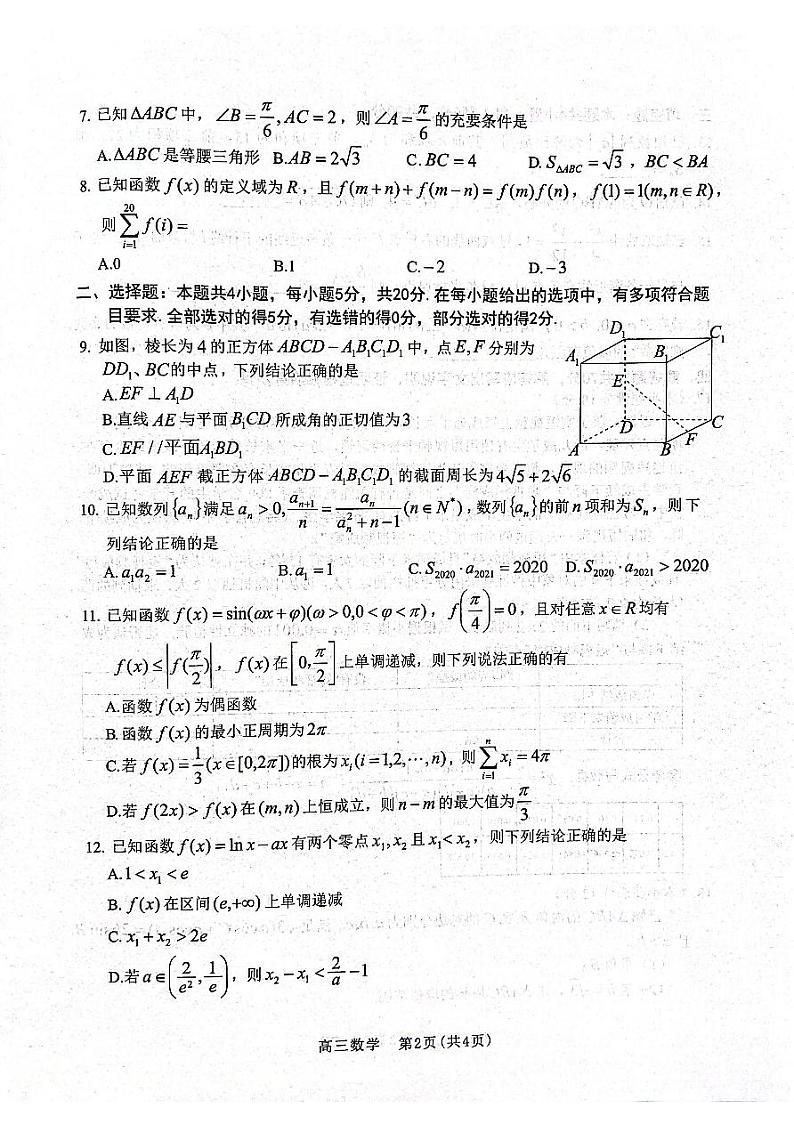 7. 已知 $\Delta ABC$ 中，$\angle B=\frac{\pi}{6}, AC=2$，则 $\angle A=\frac{\pi}{6}$ 的充要条件是
A. $\Delta ABC$ 是等腰三角形 B. $AB=2\sqrt{3}$ C. $BC=4$ D. $S_{\Delta ABC}=\sqrt{3}$，$BC<BA$
8. 已知函数 $f(x)$ 的定义域为 $R$，且 $f(m+n)+f(m-n)=f(m)f(n)$，$f(1)=1(m,n\in R)$，
则 $\sum_{i=1}^{20} f(i)=$
A.0 B.1 C.$-2$ D.$-3$
二、选择题：本题共4小题，每小题5分，共20分. 在每小题给出的选项中，有多项符合题
目要求. 全部选对的得5分，有选错的得0分，部分选对的得2分.
9. 如图，棱长为 4 的正方体 $ABCD-A_1B_1C_1D_1$ 中，点 $E,F$ 分别为
$DD_1$、$BC$ 的中点，下列结论正确的是
A. $EF\perp A_1D$
B.直线 $AE$ 与平面 $B_1CD$ 所成角的正切值为3
C. $EF//$平面$A_1BD_1$
D.平面 $AEF$ 截正方体 $ABCD-A_1B_1C_1D_1$ 的截面周长为 $4\sqrt{5}+2\sqrt{6}$
D₁ C₁
A₁ B₁
E
D C
A B F
10. 已知数列 $\{a_n\}$ 满足 $a_n>0, \frac{a_{n+1}}{n}=\frac{a_n}{a_n^2+n-1}(n\in N^*)$，数列 $\{a_n\}$ 的前 $n$ 项和为 $S_n$，则下
列结论正确的是
A. $a_1a_2=1$ B. $a_1=1$ C. $S_{2020}\cdot a_{2021}=2020$ D. $S_{2020}\cdot a_{2021}>2020$
11. 已知函数 $f(x)=\sin(\omega x+\varphi)(\omega>0,0<\varphi<\pi)$，$f\left(\frac{\pi}{4}\right)=0$，且对任意 $x\in R$ 均有
$f(x)\leq\left|f(\frac{\pi}{2})\right|$，$f(x)$ 在 $\left[0,\frac{\pi}{2}\right]$ 上单调递减，则下列说法正确的有
A.函数 $f(x)$ 为偶函数
B.函数 $f(x)$ 的最小正周期为 $2\pi$
C.若 $f(x)=\frac{1}{3}(x\in[0,2\pi])$ 的根为 $x_i(i=1,2,\cdots,n)$，则 $\sum_{i=1}^{n} x_i=4\pi$
D.若 $f(2x)>f(x)$ 在 $(m,n)$ 上恒成立，则 $n-m$ 的最大值为 $\frac{\pi}{3}$
12. 已知函数 $f(x)=\ln x-ax$ 有两个零点 $x_1,x_2$ 且 $x_1<x_2$，则下列结论正确的是
A. $1<x_1<e$
B. $f(x)$ 在区间 $(e,+\infty)$ 上单调递减
C. $x_1+x_2>2e$
D.若 $a\in\left(\frac{2}{e^2},\frac{1}{e}\right)$，则 $x_2-x_1<\frac{2}{a}-1$
高三数学 第2页(共4页)